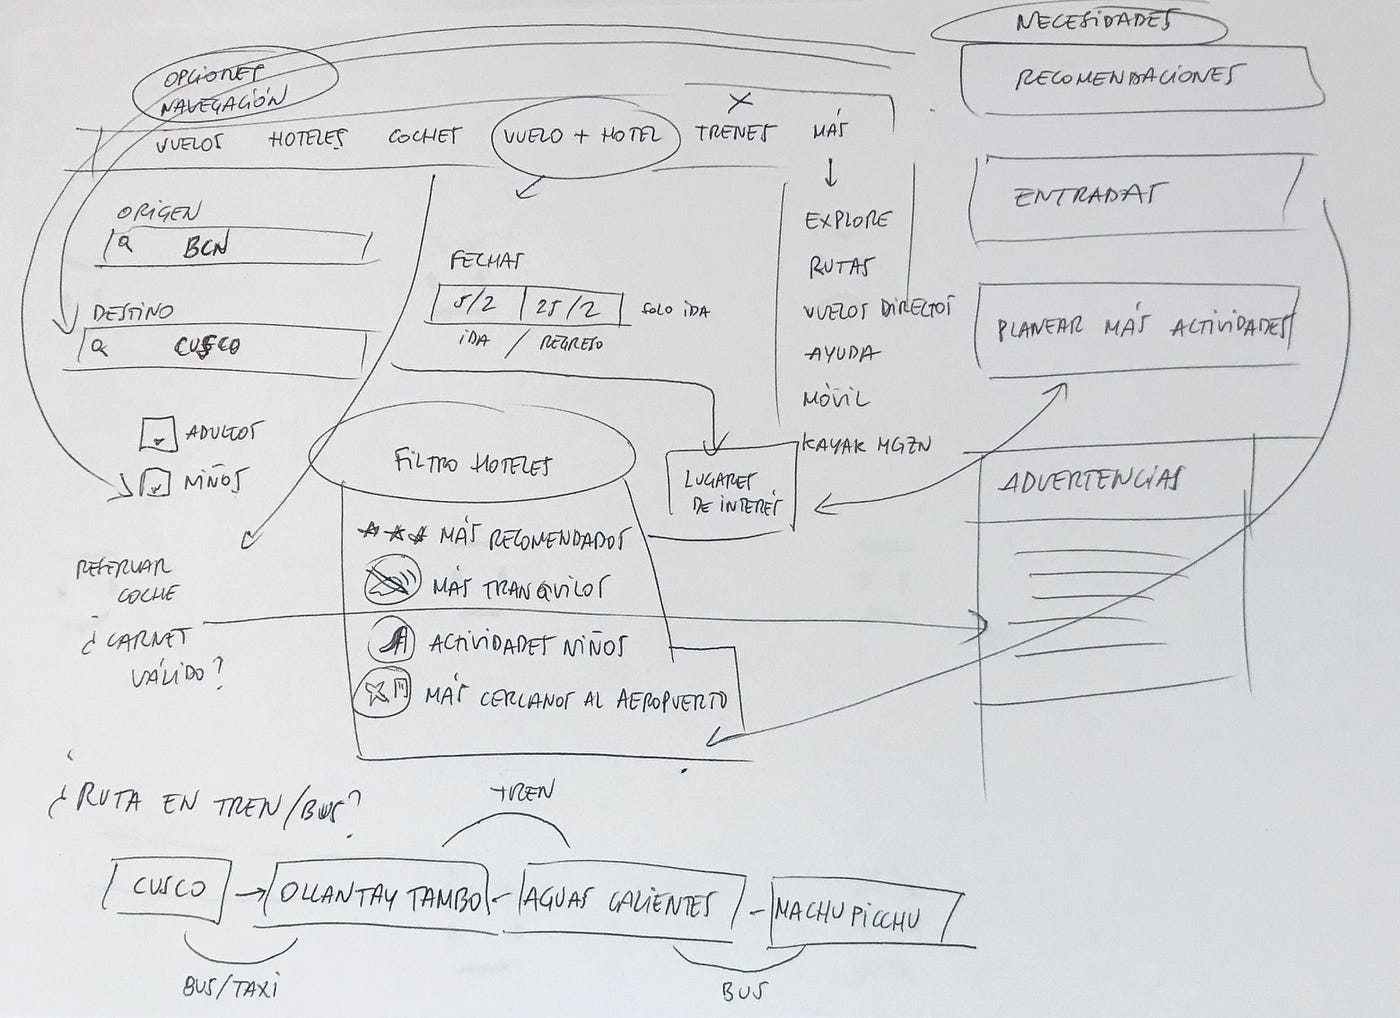 NECESIDADES
RECOMENDACIONES
OPCIONES
NAVEGACIÓN
VUELOS HOTELES COCHES VUELO + HOTEL TRENES MÁS
X
ENTRADAS
ORIGEN
BCN
EXPLORE
RUTAS
VUELOS DIRECTOS
AYUDA
MÓVIL
KAYAK MGZN
FECHAS
5/2 25/2 SOLO IDA
IDA / REGRESO
DESTINO
CUSCO
PLANEAR MÁS ACTIVIDADES
ADULTOS
NIÑOS
FILTRO HOTELES
LUGARES
DE INTERÉS
ADVERTENCIAS
MÁS RECOMENDADOS
MÁS TRANQUILOS
ACTIVIDADES NIÑOS
MÁS CERCANOS AL AEROPUERTO
RESERVAR
COCHE
¿CARNET
VÁLIDO?
¿RUTA EN TREN/BUS?
TREN
CUSCO → OLLANTAYTAMBO - AGUAS CALIENTES - MACHU PICCHU
BUS/TAXI
BUS